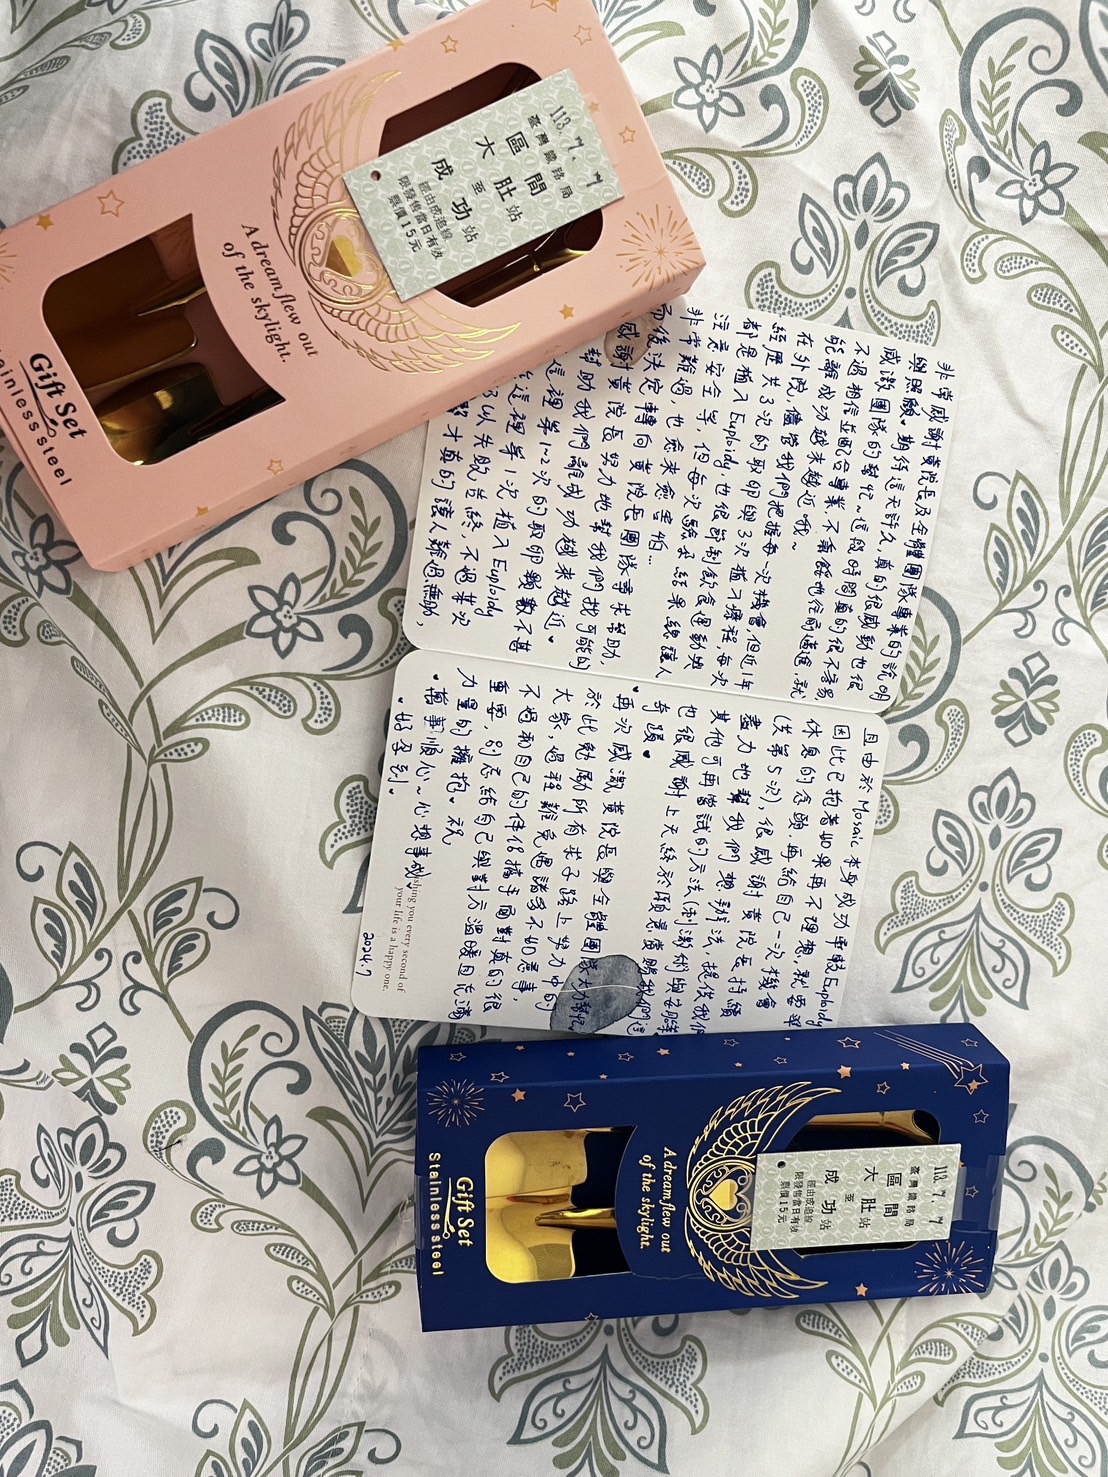 Gift Set
Stainless steel
A dream flew out
of the skylight.
113. 7. 7
臺灣鐵路局
區間
大肚站
至
成功站
經由成追線
限發售當日有效
票價15元
非常感謝黃院長及全體團隊專業的說明
與照顧♥期待這天許久,真的很感動也很
感激團隊的幫忙~這段時間真的很不容易,
不過相信並配合專業 不要餒地往前邁進,就
能離成功越來越近哦~
在外院,儘管我們把握每一次機會,但近1年
經歷共3次的取卵與3次植入療程,每次
都是植入Euploidy也很節制飲食運動與
注意安全等,但每次驗孕結果總讓人
非常難過 也愈來愈害怕...
而後決定轉向黃院長團隊尋求幫助,
感謝黃院長努力地幫我們找可能的
幫助我們離成功越來越近♥
這裡第1~2次的取卵顆數不甚
這裡第1次植入Euploidy
以失敗告終,不過某次
才真的讓人難過無助,
且由於Mosaic本身成功率較Euploidy
因此已抱著如果再不理想,就要準
休息的念頭,再給自己一次機會
(共第5次),很感謝黃院長持續
盡力地幫我們想辦法,提供我們
其他可再嘗試的方法
也很感謝上天終於願意賞賜我們這
奇蹟♥
♥再次感激黃院長與全體團隊大力幫忙,
於此勉勵所有求子路上努力中的
大家,過程難免遇諸多不如意事,
不過和自己的伴侶攜手面對真的很
重要,別忘給自己與對方溫暖且充滿
力量的擁抱♥祝
♥萬事順心~心想事成♥
♥好孕到♥
shing you every second of
your life is a happy one.
2024.7
Gift Set
Stainless steel
A dream flew out
of the skylight.
113. 7. 7
臺灣鐵路局
區間
大肚站
至
成功站
經由成追線
限發售當日有效
票價15元